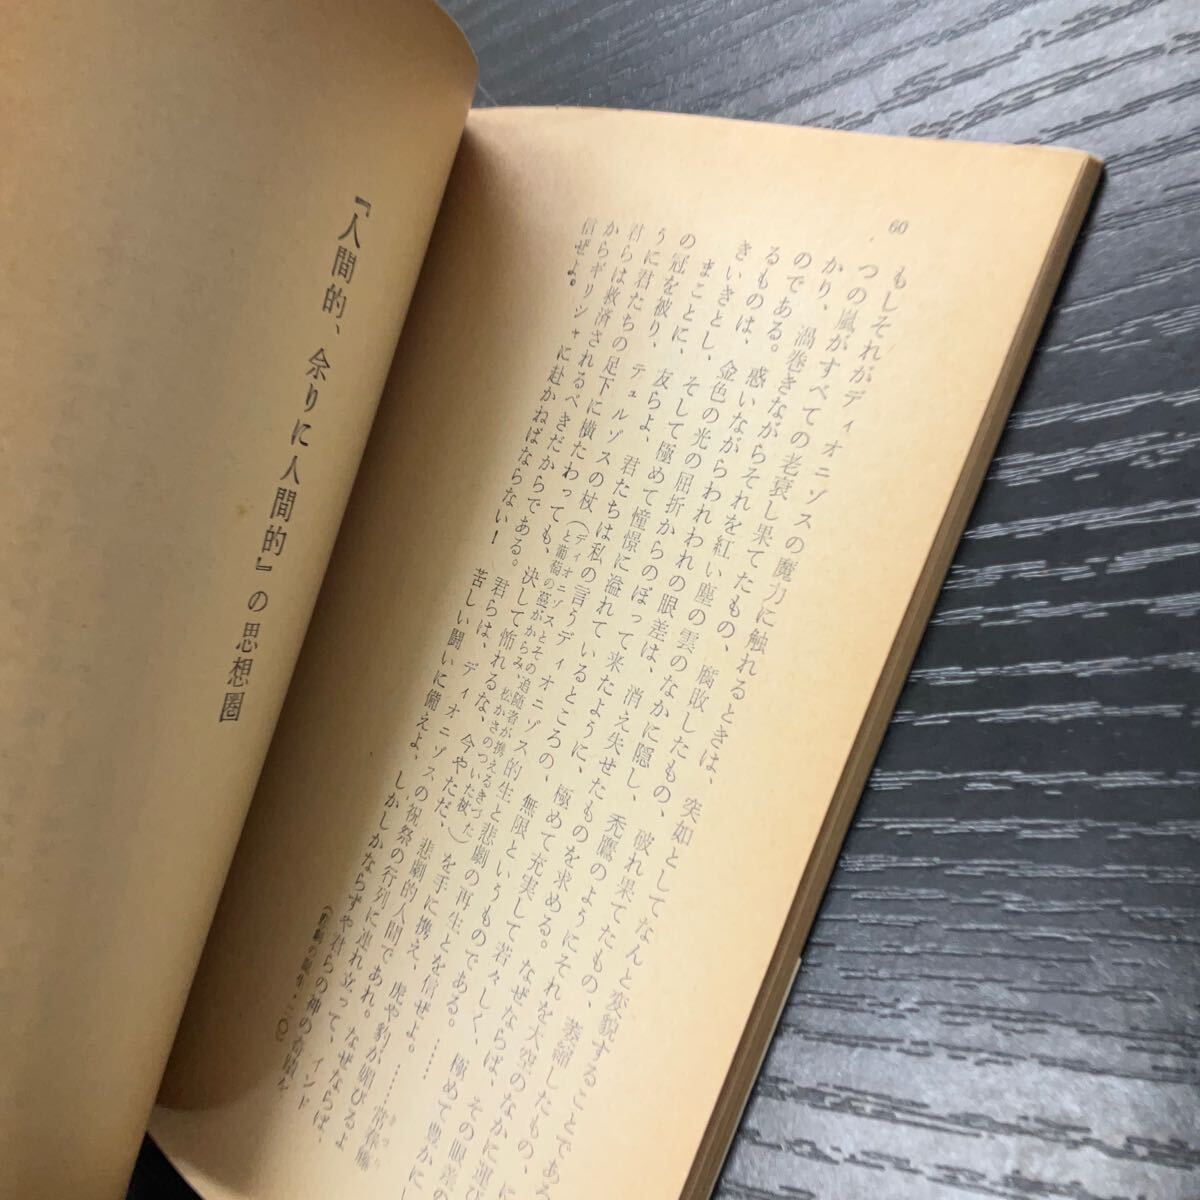 60
もしそれがディオニゾスの魔力に触れるときは、突如としてなんと変貌することであろ
つの嵐がすべての老衰し果てたもの、腐敗したもの、破れ果てたもの、萎縮したもの、に
かり、渦巻きながらそれを紅い塵の雲のなかに隠し、禿鷹のようにそれを大空のなかに運び
のである。惑いながらわれわれの眼差は、消え失せたものを求める。なぜならば、その眼差の
るものは、金色の光の屈折からのぼって来たように、極めて充実して若々しく、極めて豊かにし
きいきとし、そして極めて憧憬に溢れているところの、無限というものである。……
まことに、友らよ、君たちは私の言うディオニゾス的生と悲劇の再生とを信ぜよ。……常春藤
の冠を被り、テュルゾスの杖(ディオニゾスとその追随者が携えるきづた
と葡萄の蔓がからみ、松かさのついた杖)を手に携え、
うに君たちの足下に横たわっても、決して怖れるな、今やただ、悲劇的人間であれ。なぜならば、
君らは救済されるべきだからである。君らは、ディオニゾスの祝祭の行列に連れ立って、インド
からギリシャに赴かねばならない！苦しい闘いに備えよ、しかしかならずや君らの神の奇蹟を
信ぜよ。
『人間的、余りに人間的』の思想圏